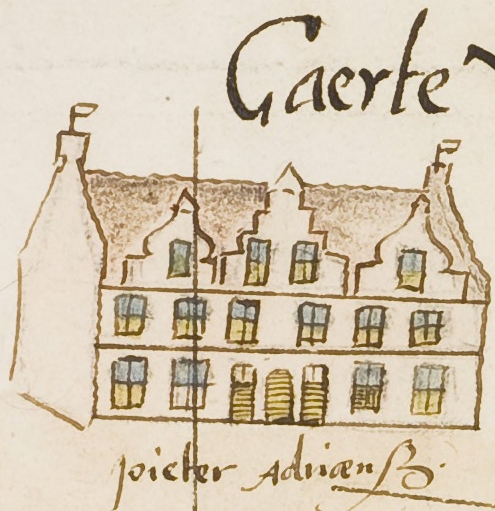 Caerte
pieter Adriaenß.